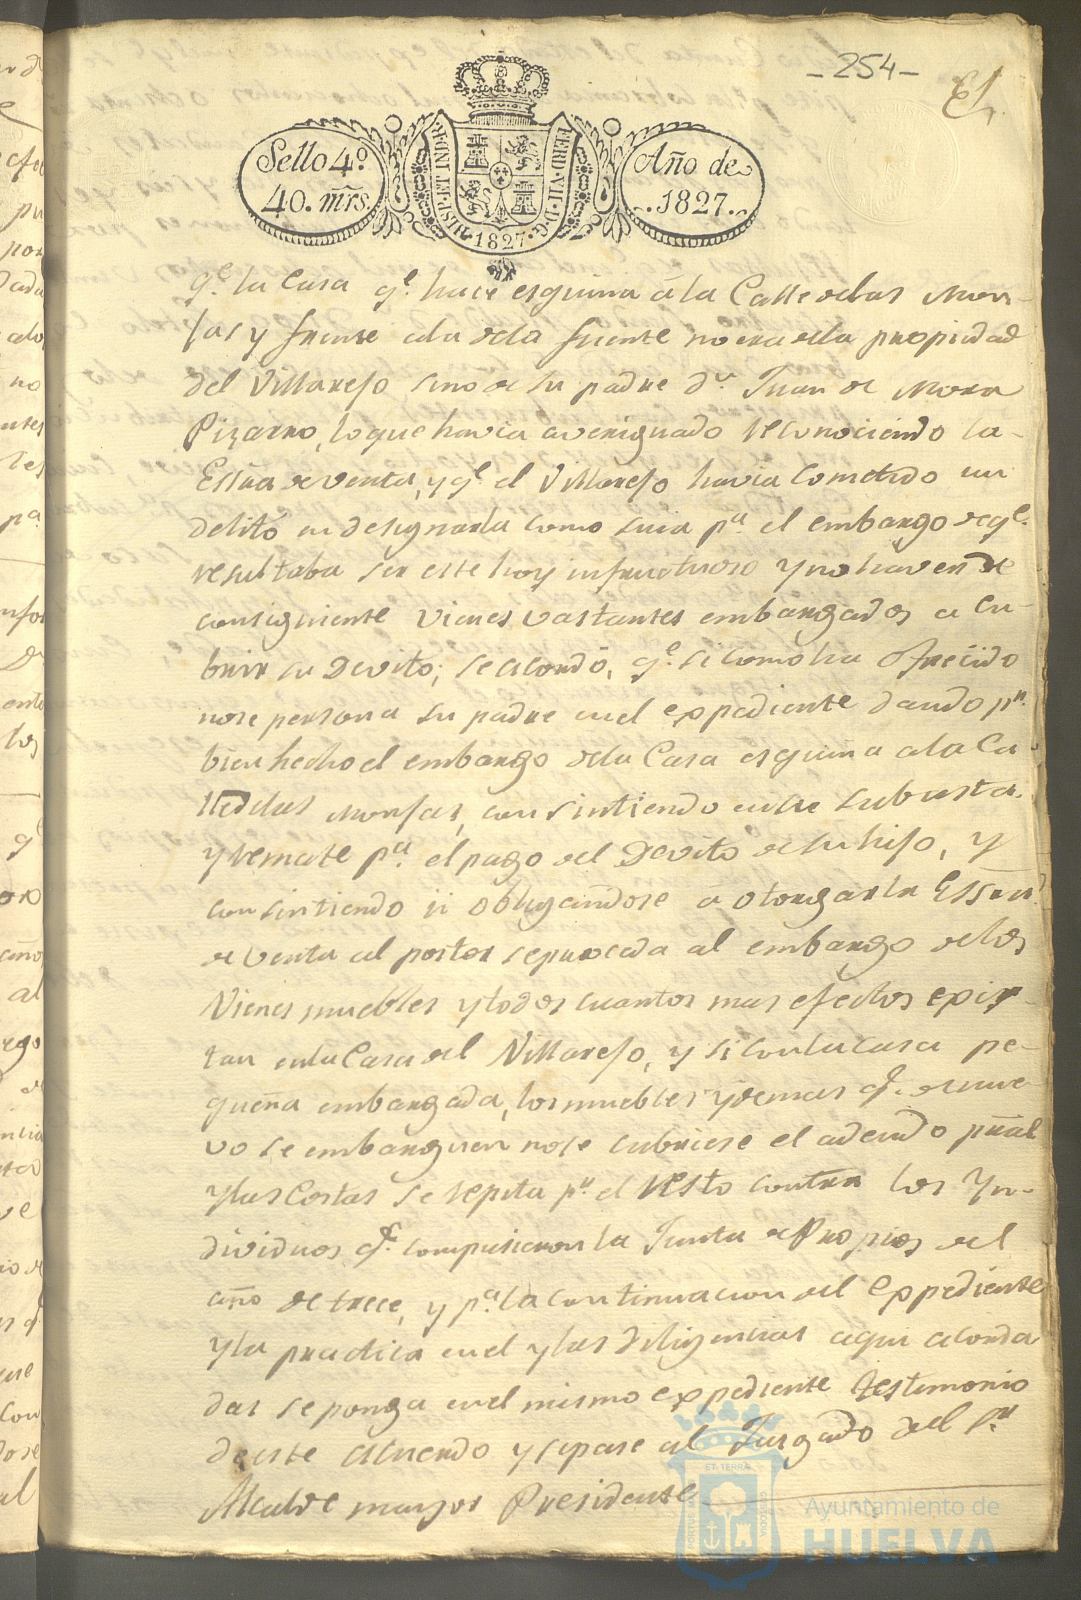 -254-
Sello 4º
40. mrs.
HISP. ET IND. R.
FERD. VII. D. G.
1827
Año de
1827.
qe. la Casa qe. hace esquina á la Calle delas Mon-
jas y frente ala dela fuente no era dela propiedad
del Villarejo sino de su padre Dn. Juan de Mora
Pizarro, lo que havia averiguado reconociendo la
Essra de venta, y qe. el Villarejo havia cometido un
delito en designarla como suia pa. el embargo deqe.
resultaba ser este hoy infructuoso y no haver de
consiguiente vienes vastantes embargados a cu-
brir su Devito; se acordó, qe. si como ha ofrecido
nose persona su padre enel expediente dando pr.
bien hecho el embargo dela Casa esquina ala Ca
lledelas Monjas, consintiendo en su subasta
y remate pa. el pago del Devito de su hijo, y
consintiendo ú obligandose a otorgar la Essra.
de venta al postor seproceda al embargo delos
Vienes muebles y todos cuantos mas efectos exis-
tan enla Casa del Villarejo, y si con la casa pe-
queña embargada, los muebles y demas q. de nue-
vo se embarguen nose cubriese el adeudo pral
y las Costas se repita pr. el resto contra los Yn-
dividuos q. compusieron la Junta de Propios del
año de trece, y pa. la continuacion del expediente
y la practica enel y las diligencias aqui acorda
das se ponga enel mismo expediente testimonio
deeste acuerdo y sepase al Juzgado del Sr.
Alcalde mayor Presidente
Ayuntamiento de
HUELVA